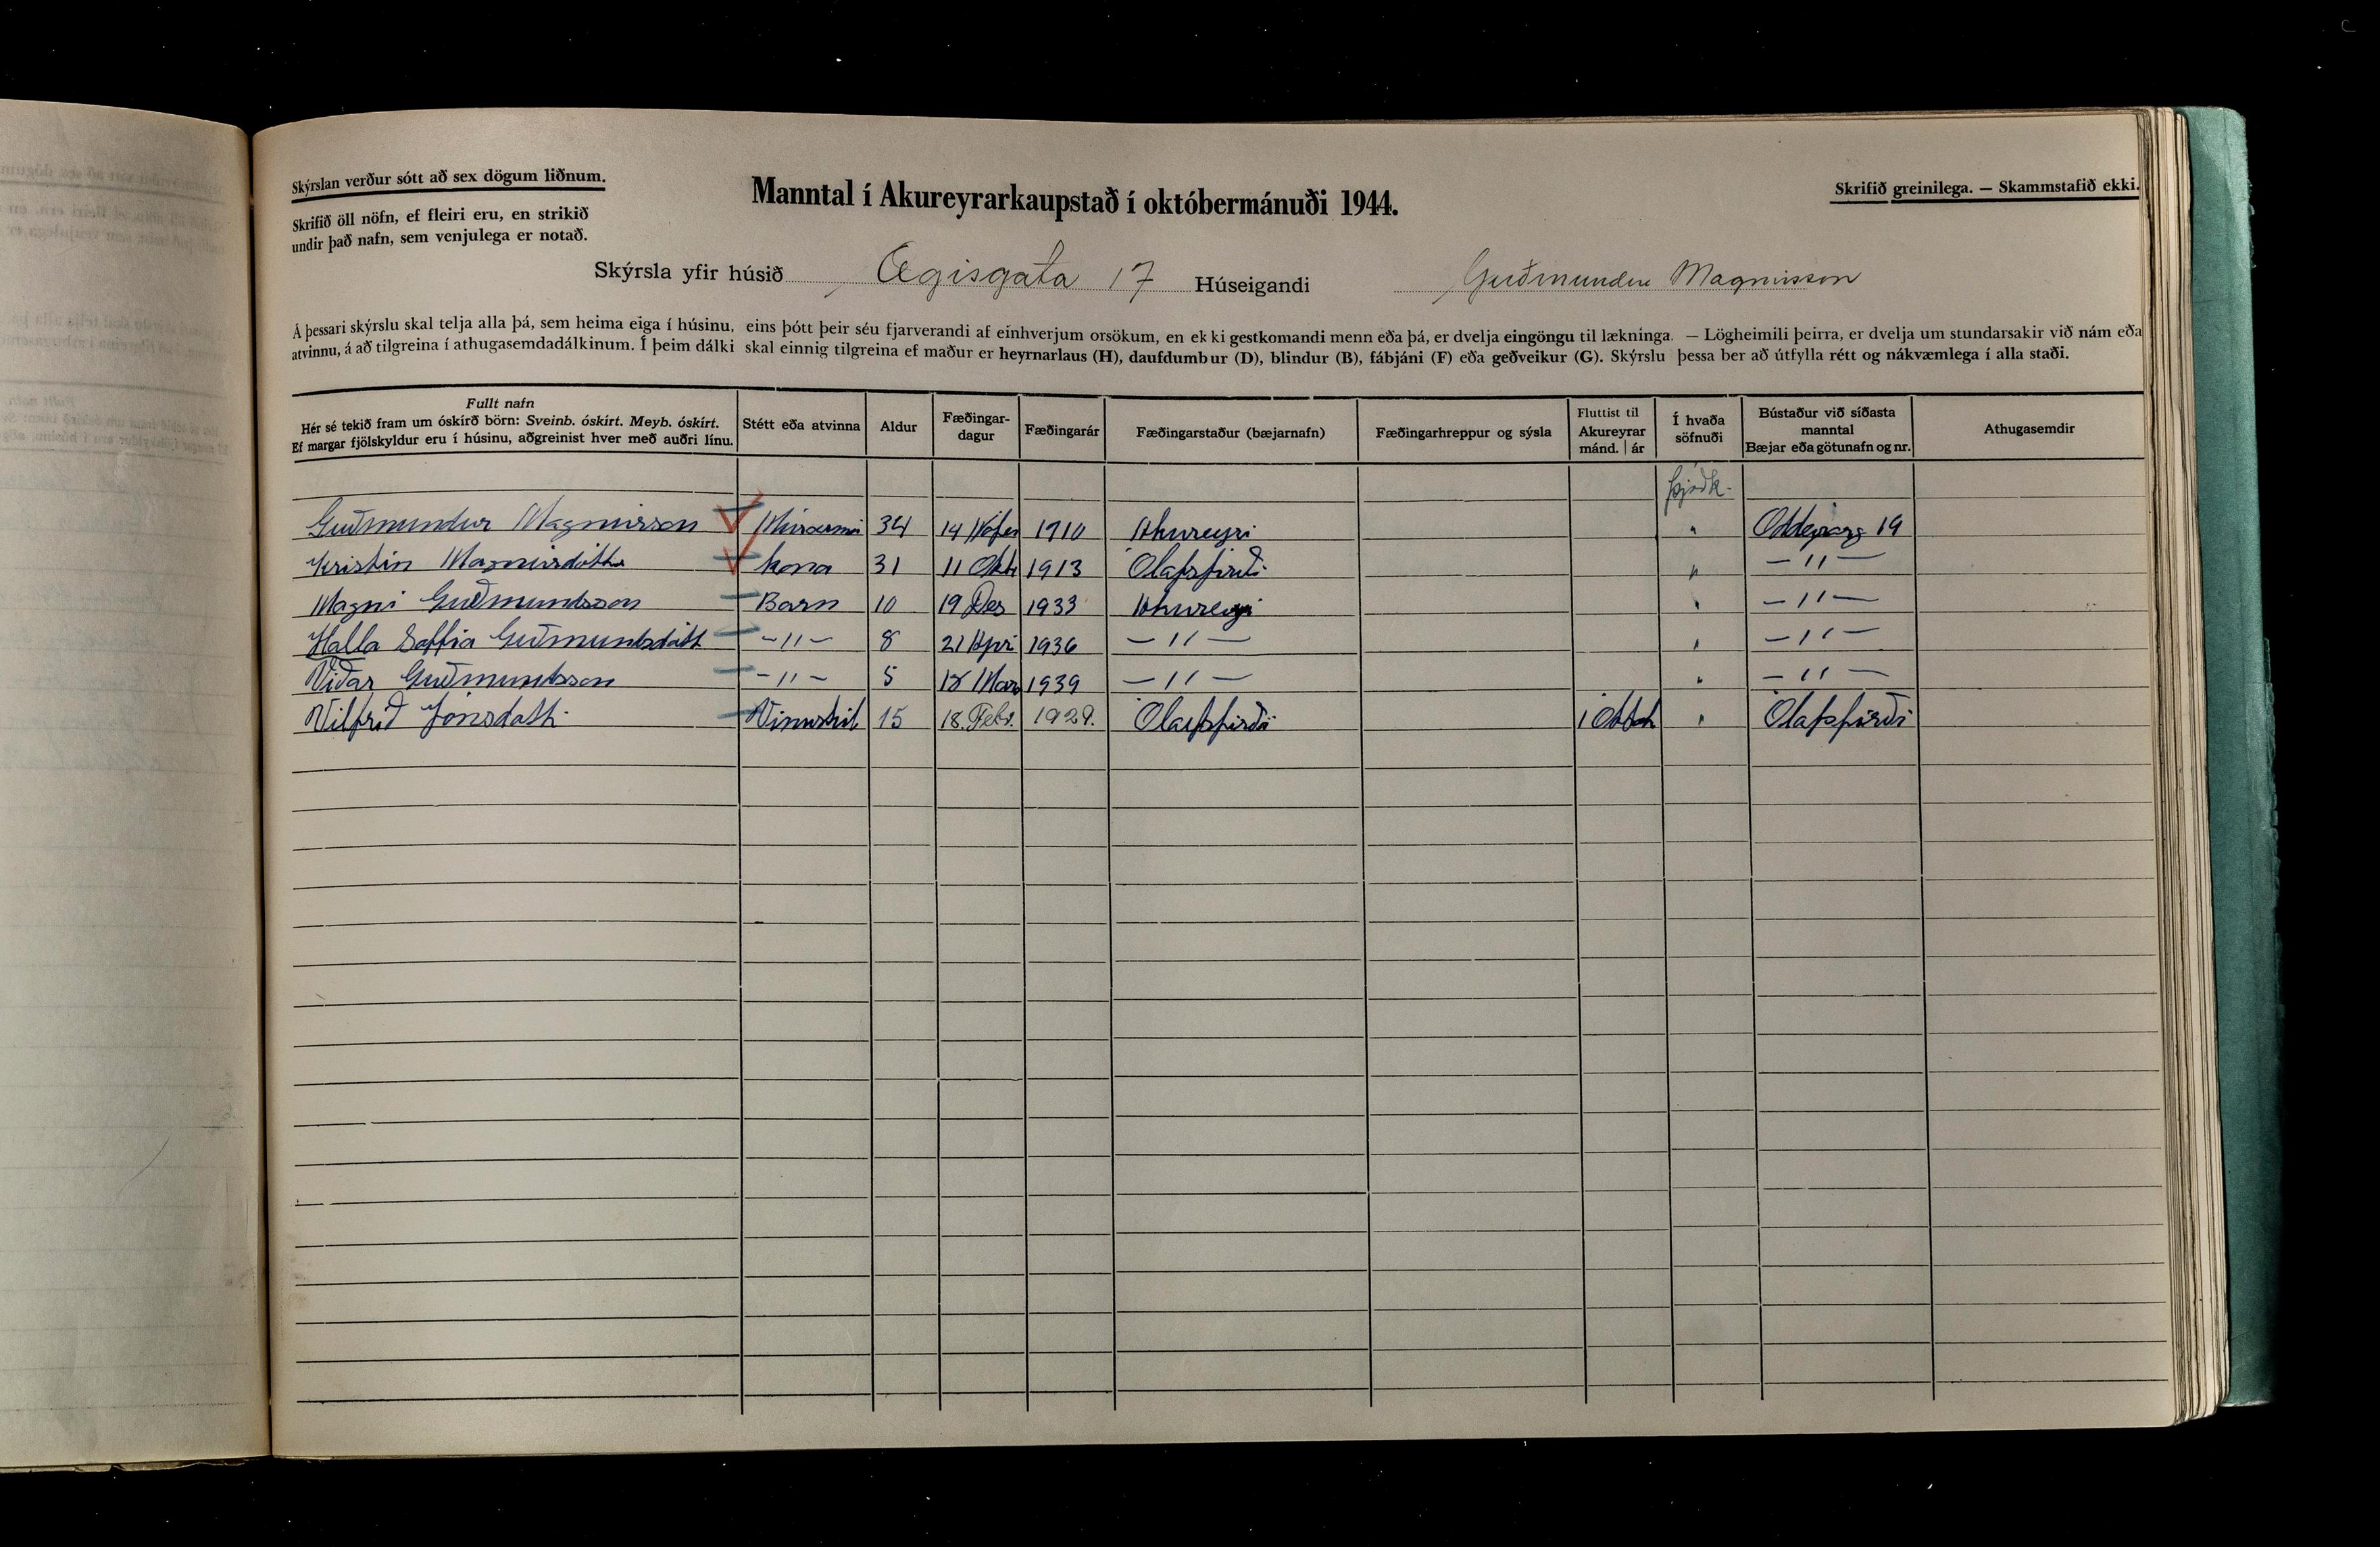 Skýrslan verður sótt að sex dögum liðnum.
Skrifið öll nöfn, ef fleiri eru, en strikið
undir það nafn, sem venjulega er notað.
Manntal í Akureyrarkaupstað í októbermánuði 1944.
Skrifið greinilega. — Skammstafið ekki.
Skýrsla yfir húsið Ægisgata 17 Húseigandi Guðmundur Magnússon
Á þessari skýrslu skal telja alla þá, sem heima eiga í húsinu, eins þótt þeir séu fjarverandi af einhverjum orsökum, en ekki gestkomandi menn eða þá, er dvelja eingöngu til lækninga. — Lögheimili þeirra, er dvelja um stundarsakir við nám eða
atvinnu, á að tilgreina í athugasemdadálkinum. Í þeim dálki skal einnig tilgreina ef maður er heyrnarlaus (H), daufdumbur (D), blindur (B), fábjáni (F) eða geðveikur (G). Skýrslu þessa ber að útfylla rétt og nákvæmlega í alla staði.
Fullt nafn
Hér sé tekið fram um óskírð börn: Sveinb. óskírt. Meyb. óskírt.
Ef margar fjölskyldur eru í húsinu, aðgreinist hver með auðri línu.
Stétt eða atvinna
Aldur
Fæðingar-
dagur
Fæðingarár
Fæðingarstaður (bæjarnafn)
Fæðingarhreppur og sýsla
Fluttist til
Akureyrar
mánd. | ár
Í hvaða
söfnuði
Bústaður við síðasta
manntal
Bæjar eða götunafn og nr.
Athugasemdir
þjóðk.
Guðmundur Magnússon 34 14 Nófer 1910 Akureyri " 19
Kristín Magnúsdóttir kona 31 11 Okt 1913 Ólafsfirði " — " —
Magni Guðmundsson Barn 10 19 Des 1933 Akureyri " — " —
Halla Soffia Guðmundsdótt — " — 8 21 Apri 1936 — " — " — " —
Viðar Guðmundsson — " — 5 18 Mars 1939 — " — " — " —
Vilfríð Jónsdótt. 15 18. Febr. 1929. Ólafsfirði " Ólafsfirði